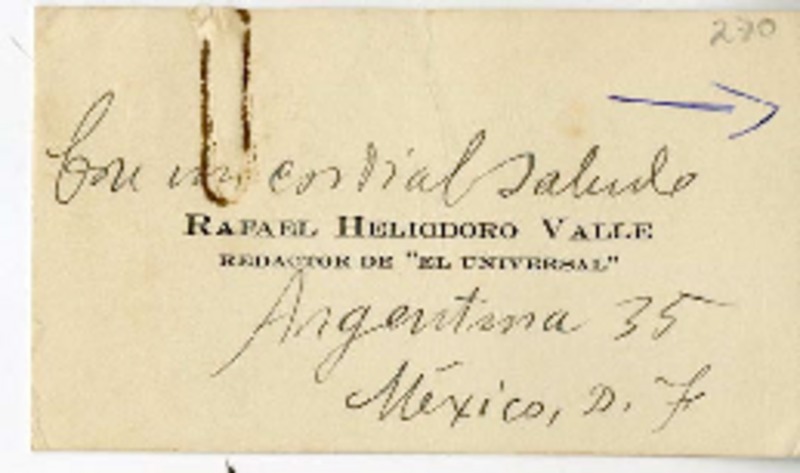 280
Con un cordial saludo
RAFAEL HELIODORO VALLE
REDACTOR DE "EL UNIVERSAL"
Argentina 35
México, D. F